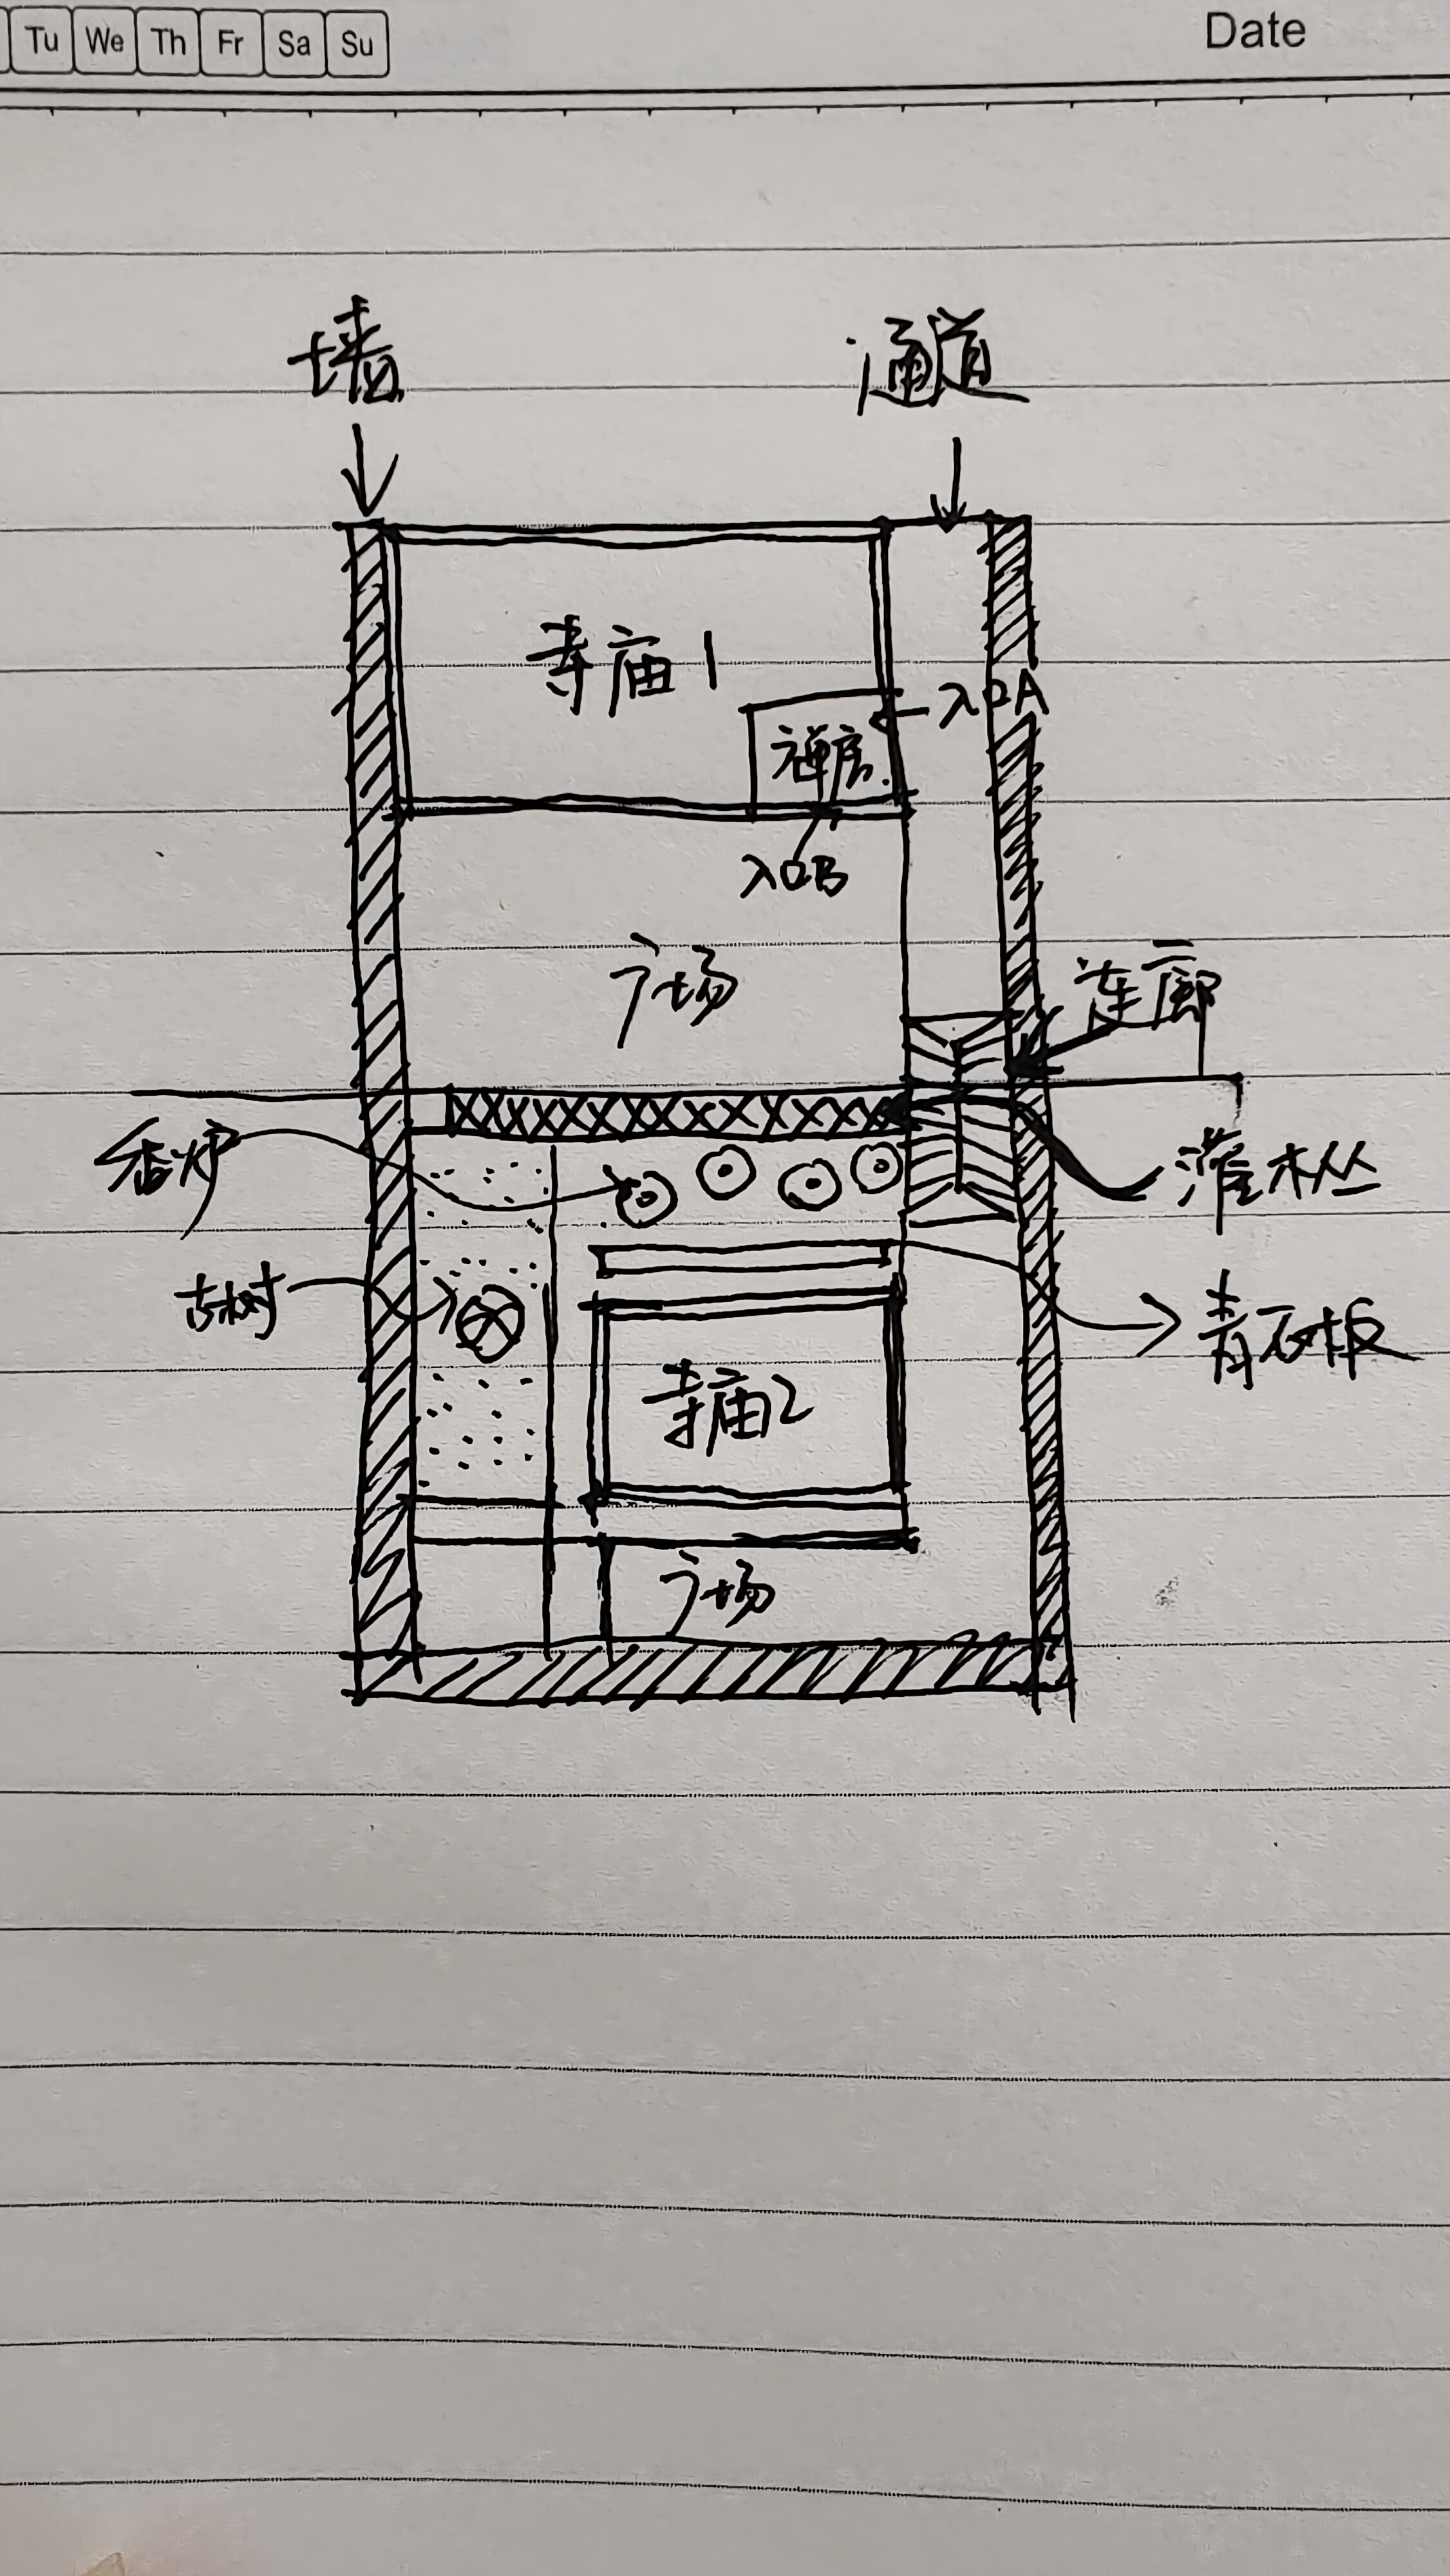 Tu We Th Fr Sa Su
Date
墙
通道
寺庙1
入口A
禅房
入口B
广场
连廊
香炉
灌木丛
古树
青石板
寺庙2
广场